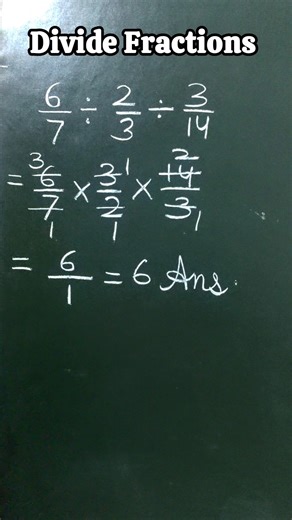 Divide Fractions
6/7 ÷ 2/3 ÷ 3/14
= 3 6/7 1 × 3 1/2 1 × 2 14/3 1
= 6/1 = 6 Ans.